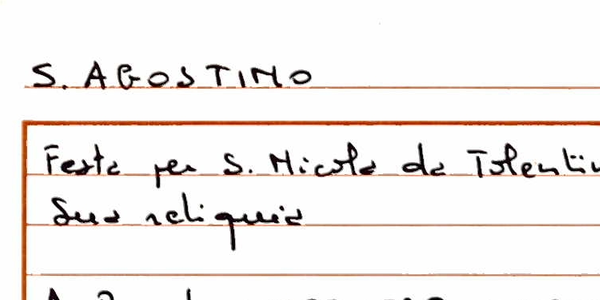 S. AGOSTINO
Festa per S. Nicola da Tolentin
Sua reliquia